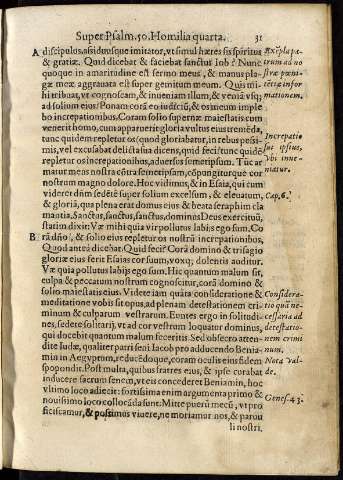 Super Psalm. 50. Homilia quarta. 31
A discipulus, assiduusque imitator, vt simul hæres sis spiritus
& gratiæ. Quid dicebat & faciebat sanctus Iob? Nunc
quoque in amaritudine est sermo meus, & manus pla-
gæ meæ aggrauata est super gemitum meum. Quis mi-
hi tribuat, vt cognoscam, & inueniam illum, & veniā vsq;
ad solium eius? Ponam corā eo iudiciū, & os meum imple
bo increpationibus. Coram solio supernæ maiestatis cum
venerit homo, cum apparuerit gloria vultus eius treméda,
tunc quidem repletur os (quod gloriabatur, in rebus pessi-
mis, vel excusabat delicta sua dicens, quid feci? tunc quidē
repletur os increpationibus, aduersus semetipsum. Tūc ar
matur mens nostra cōtra semetipsam, cōpungiturque cor
nostrum magno dolore. Hoc vidimus, & in Esaia, qui cum
videret dñm sedere super solium excelsum, & eleuatum,
& gloriā, qua plena erat domus eius & beata seraphim cla
mantia. Sanctus, sanctus, sanctus, dominus Deus exercituū,
statim dixit: Væ mihi quia vir pollutus labijs ego sum. Co
B rā dño, & solio eius repletur os nostrū increpationibus,
Quod antéa dicebat. Quid feci? Corā domino & trisagio
gloriæ eius ferit Esaias cor suum, voxq; dolentis auditur.
Væ quia pollutus labijs ego sum. Hic quantum malum sit,
culpa & peccatum nostrum cognoscitur, corā domino &
solio maiestatis eius. Videte iam quata consideratione &
meditatione vobis sit opus, ad plenam detestationem cri
minum & culparum vestrarum. Euntes ergo in solitudi-
nes, sedete solitarij, vt ad cor vestrum loquatur dominus,
qui docebit quantum malum feceritis. Sed obsecro atten-
dite Iudæ, qualiter patri seni Iacob pro adducendo Benia-
min in Aegyptum, reducēdoque, coram oculis eius fidem
spopondit. Post multa, quibus fratres eius, & ipse curabat
inducere sacrum senem, vt eis concederet Beniamin, hoc
vltimo loco adiecit: fortissima enim argumenta primo &
nouissimo loco collocāda sunt. Mitte puerū mecū, vt pro
ficiscamur, & possimus viuere, ne moriamur nos, & paruu
li nostri.
Exēpla pa-
trum ad no
stræ pœni-
tētiæ infor
mationem.
Increpatio
suc ipsius,
vbi inue-
niatur.
Cap. 6.
Considera-
tio quā ne-
cessaria ad
detestatio-
nem crimi
num.
Nota val-
de.
Genes. 43.